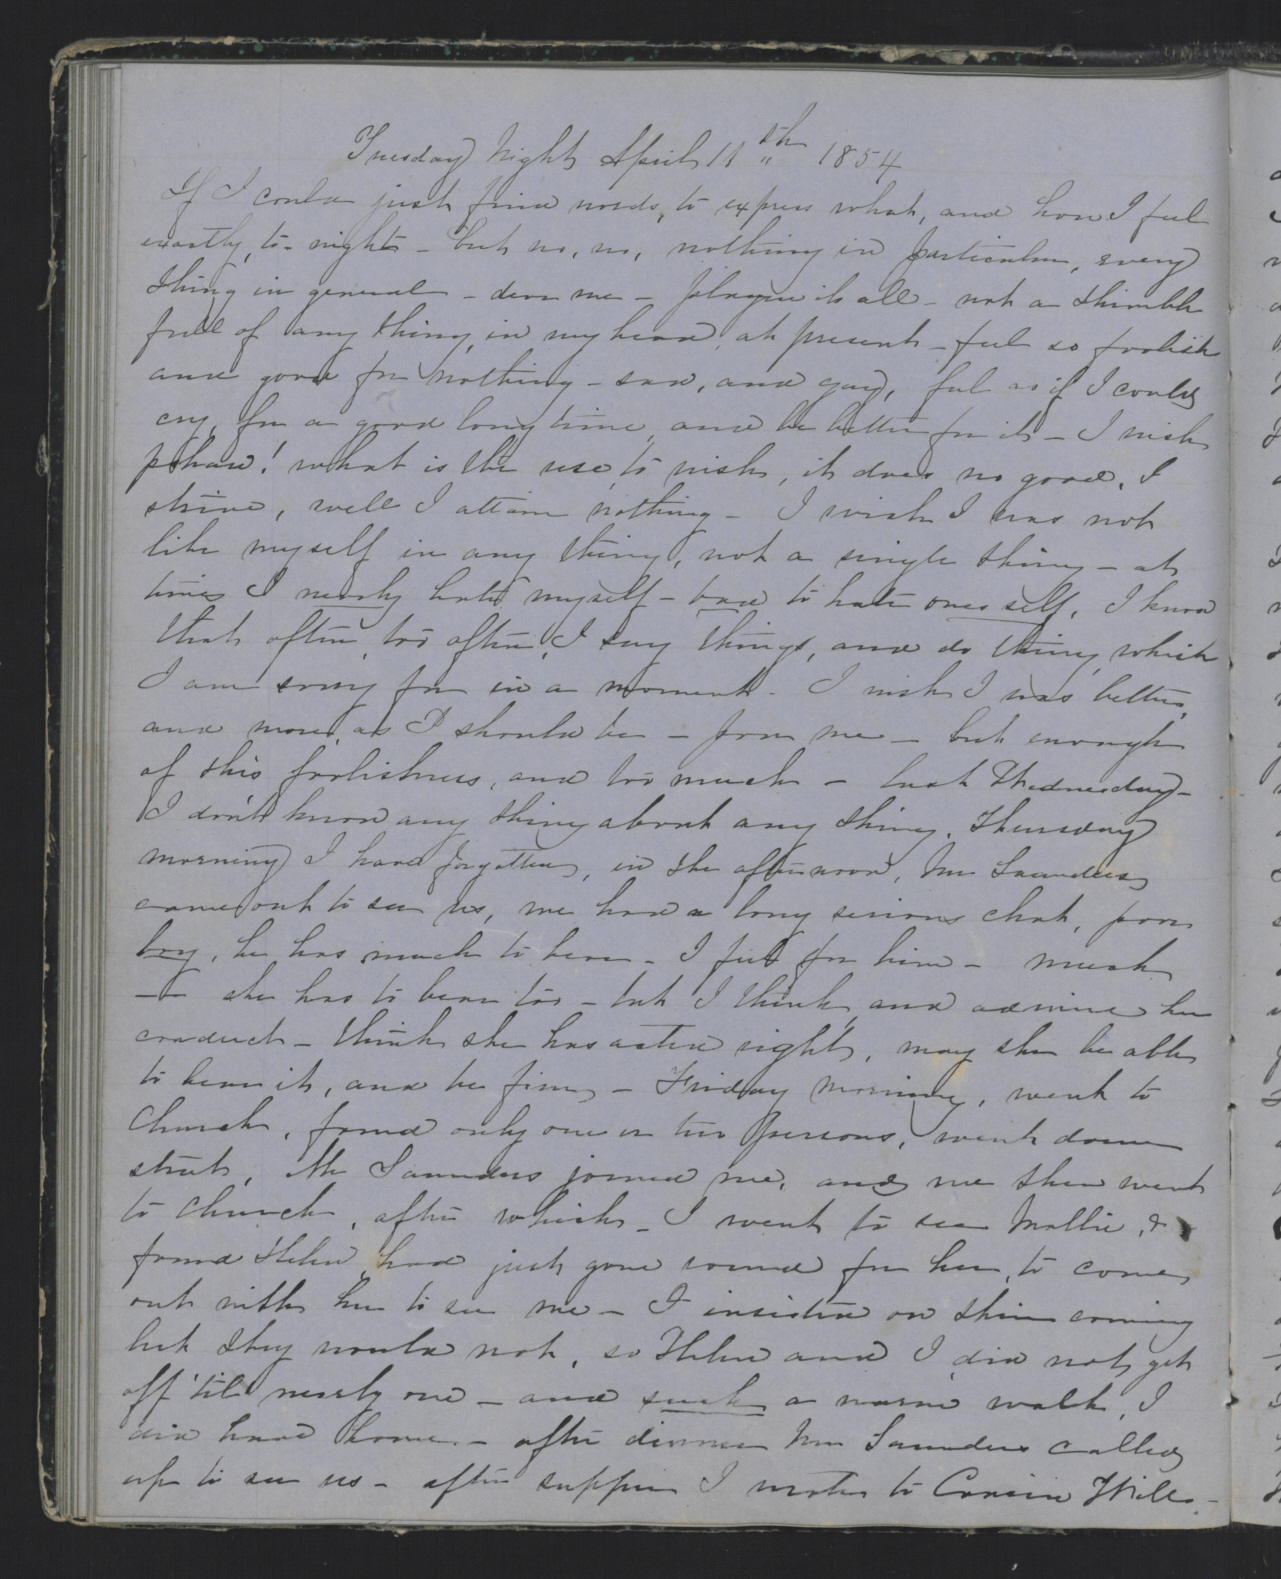 Tuesday Night April 11th 1854
If I could just find words, to express what, and how I feel
exactly, to-night - but no, no, nothing in particular, every
thing in general - dear me - plague it all - not a thimble
full of any thing in my head, at present - feel so foolish
and good for nothing - sad, and gay, feel as if I could
cry, for a good long time, and be better for it - I wish
pshaw! what is the use to wish, it does no good, I
strive, well I attain nothing - I wish I was not
like myself in any thing, not a single thing - at
times I nearly hate myself - bad to hate ones self, I know
that often, too often, I say things, and do things, which
I am sorry for in a moment - I wish I was better,
and more, as I should be - poor me - but enough
of this foolishness, and too much - last Wednesday -
I don't know any thing about any thing, Thursday
morning I have forgotten, in the afternoon, Mr Saunders
came out to see us, we had a long serious chat, poor
boy, he has much to bear - I feel for him - much
-- she has to bear too - but I think, and admire her
conduct - think she has acted right, may she be able
to bear it, and be firm - Friday morning, went to
Church, found only one or two persons, went down
street, Mr Saunders joined me, and we then went
to Church, after which - I went to see Mollie, &
found Helen had just gone round for her, to come
out with her to see me - I insisted on their coming
but they would not, so Helen and I did not get
off 'till nearly one - and such a warm walk, I
did have home - after dinner Mr Saunders called
up to see us - after supper I wrote to Cousin Will -